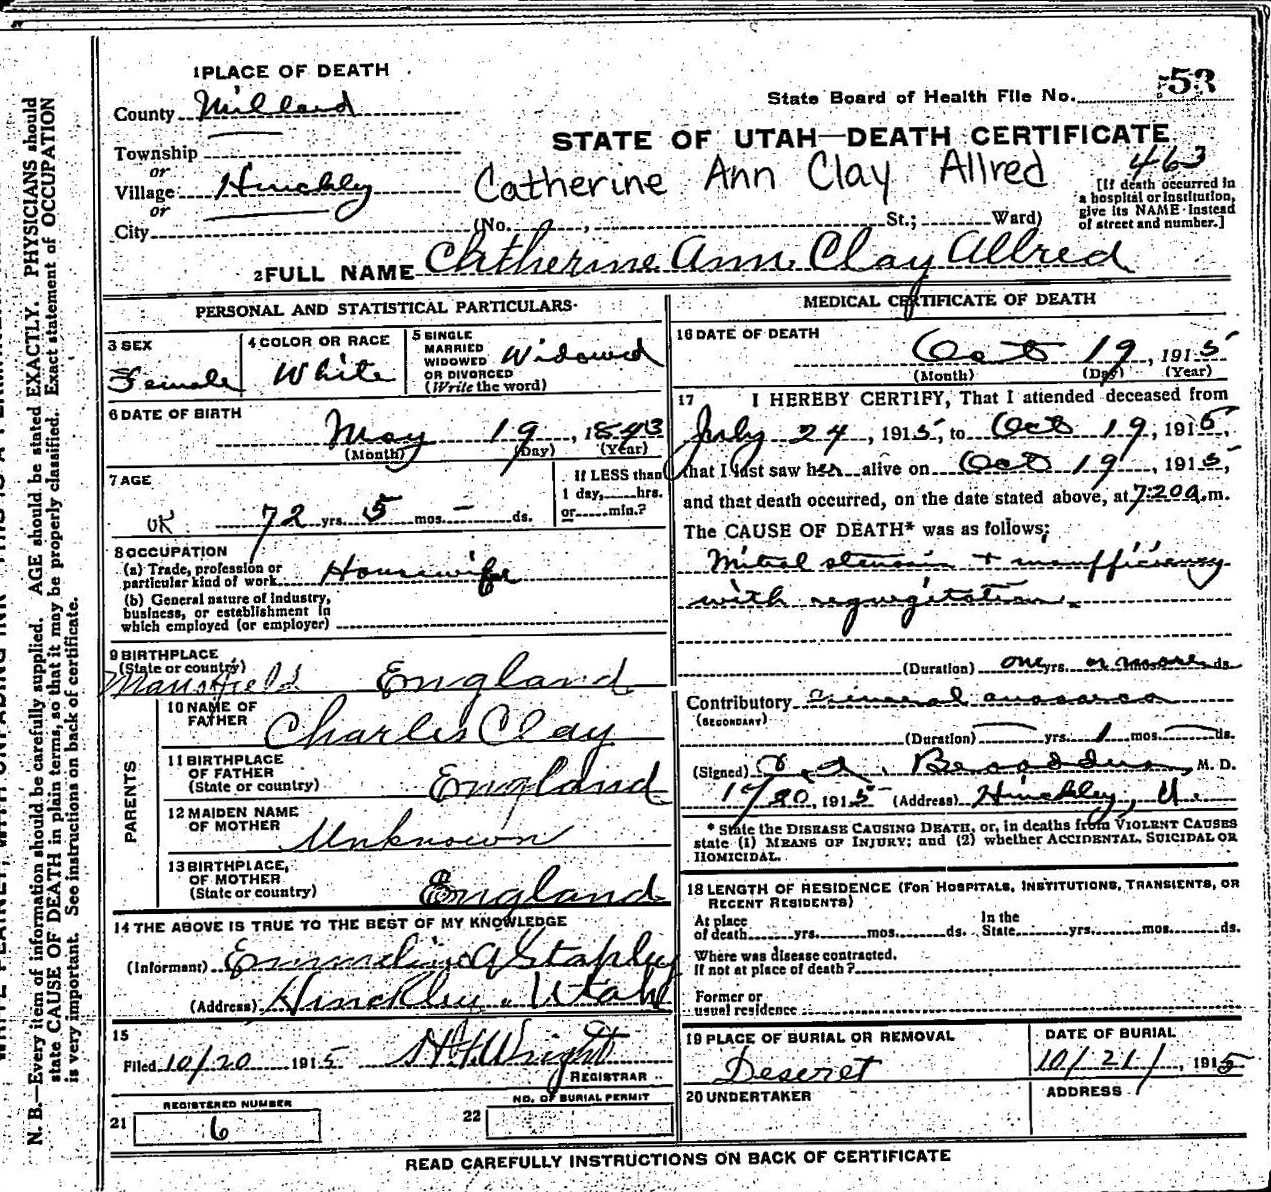 1 PLACE OF DEATH
County Millard
Township
or
Village Hinckley
or
City
State Board of Health File No. 53
STATE OF UTAH—DEATH CERTIFICATE
463
Catherine Ann Clay Allred
(No. , St.; Ward)
[If death occurred in
a hospital or institution,
give its NAME instead
of street and number.]
2 FULL NAME Catherine Ann Clay Allred
PERSONAL AND STATISTICAL PARTICULARS
3 SEX
Female
4 COLOR OR RACE
White
5 SINGLE
MARRIED
WIDOWED
OR DIVORCED
(Write the word)
Widowed
6 DATE OF BIRTH
May 19, 1843
(Month) (Day) (Year)
7 AGE
OK 72 yrs. 5 mos. – ds.
If LESS than
1 day, hrs.
or min.?
8 OCCUPATION
(a) Trade, profession or
particular kind of work Housewife
(b) General nature of industry,
business, or establishment in
which employed (or employer)
9 BIRTHPLACE
(State or country)
Mansfield England
PARENTS
10 NAME OF
FATHER
Charles Clay
11 BIRTHPLACE
OF FATHER
(State or country)
England
12 MAIDEN NAME
OF MOTHER
Unknown
13 BIRTHPLACE,
OF MOTHER
(State or country)
England
14 THE ABOVE IS TRUE TO THE BEST OF MY KNOWLEDGE
(Informant) Emmeline A Stapley
(Address) Hinckley, Utah
15
Filed 10/20 1915 Wright
REGISTRAR
21 REGISTERED NUMBER
6
22 NO. OF BURIAL PERMIT
MEDICAL CERTIFICATE OF DEATH
16 DATE OF DEATH
Oct 19, 1915
(Month) (Day) (Year)
17 I HEREBY CERTIFY, That I attended deceased from
July 24, 1915, to Oct 19, 1915,
that I last saw her alive on Oct 19, 1915,
and that death occurred, on the date stated above, at 7:20 a.m.
The CAUSE OF DEATH* was as follows:
Mitral stenosis + insufficiency
with regurgitation.
(Duration) one yrs. or more mos. ds.
Contributory General anasarca
(SECONDARY)
(Duration) yrs. 1 mos. ds.
(Signed) Broaddus, M. D.
10/20, 1915 (Address) Hinckley, U.
* State the DISEASE CAUSING DEATH, or, in deaths from VIOLENT CAUSES
state (1) MEANS OF INJURY; and (2) whether ACCIDENTAL, SUICIDAL OR
HOMICIDAL.
18 LENGTH OF RESIDENCE (FOR HOSPITALS, INSTITUTIONS, TRANSIENTS, OR
RECENT RESIDENTS)
At place
of death yrs. mos. ds.
In the
State yrs. mos. ds.
Where was disease contracted,
if not at place of death?
Former or
usual residence
19 PLACE OF BURIAL OR REMOVAL
Deseret
DATE OF BURIAL
10/21/, 1915
20 UNDERTAKER
ADDRESS
READ CAREFULLY INSTRUCTIONS ON BACK OF CERTIFICATE
N. B.—Every item of information should be carefully supplied. AGE should be stated EXACTLY. PHYSICIANS should
state CAUSE OF DEATH in plain terms, so that it may be properly classified. Exact statement of OCCUPATION
is very important. See instructions on back of certificate.